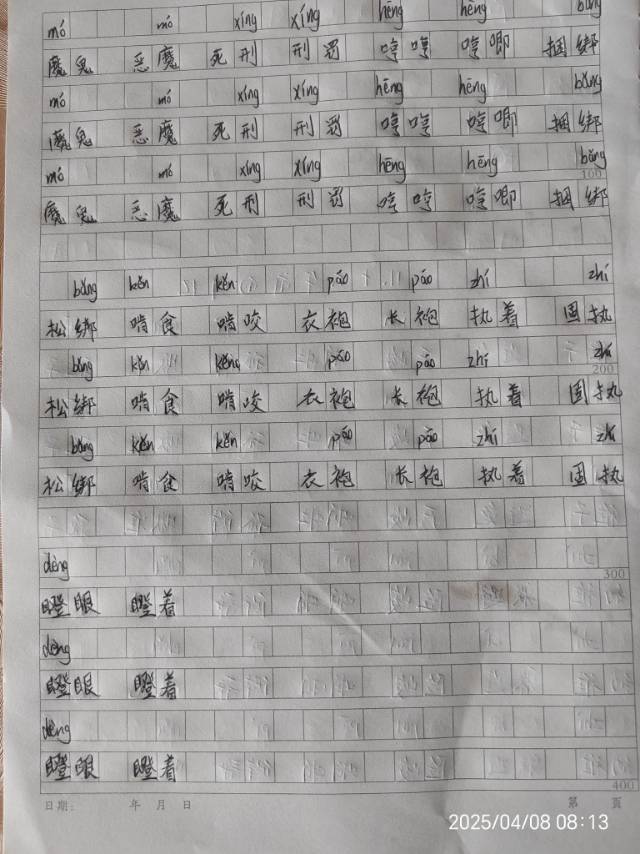 mó mó xíng xíng hēng hēng bǎng
魔鬼 恶魔 死刑 刑罚 哼哼 哼唧 捆绑
mó mó xíng xíng hēng hēng bǎng
魔鬼 恶魔 死刑 刑罚 哼哼 哼唧 捆绑
mó mó xíng xíng hēng hēng bǎng
100
魔鬼 恶魔 死刑 刑罚 哼哼 哼唧 捆绑
bǎng kěn kěn páo páo zhí zhí
松绑 啃食 啃咬 衣袍 长袍 执着 固执
bǎng kěn kěng páo páo zhí zhí
200
松绑 啃食 啃咬 衣袍 长袍 执着 固执
bǎng kěn kěn páo páo zhí zhí
松绑 啃食 啃咬 衣袍 长袍 执着 固执
dèng
300
瞪眼 瞪着
dèng
瞪眼 瞪着
dèng
瞪眼 瞪着
400
日期: 年 月 日 第 页
2025/04/08 08:13